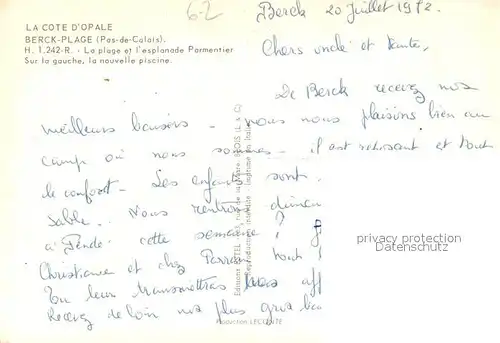 6-2
LA COTE D'OPALE
BERCK-PLAGE (Pas-de-Calais).
H. 1.242-R. - La plage et l'esplanade Parmentier
Sur la gauche, la nouvelle piscine.
Berck 20 Juillet 1972.
Chers oncle et tante,
De Berck recevez nos
meilleurs baisers - nous nous plaisons bien au
camp où nous sommes - il est reposant et tout
le confort - Les enfants sont
sable. Nous rentrons diman
a cette semaine ?
Christiane et chez tout
Tu leur transmettras nos aff
Recevez de loin nos plus gros bai
Editions d'art
Reproduction interdite
privacy protection
watermark
Production LECONTE